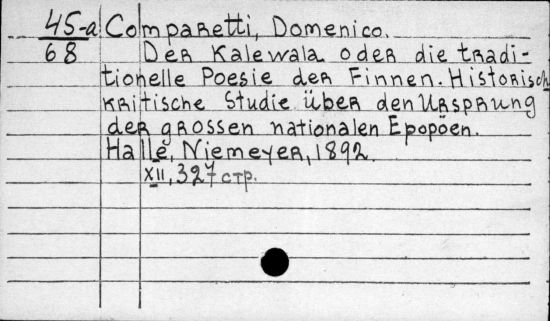 45-a Comparetti, Domenico.
68 Der Kalewala oder die tradi-
tionelle Poesie der Finnen. Historisch
kritische Studie über den Ursprung
der grossen nationalen Epopöen.
Halle, Niemeyer, 1892.
XII, 327 стр.